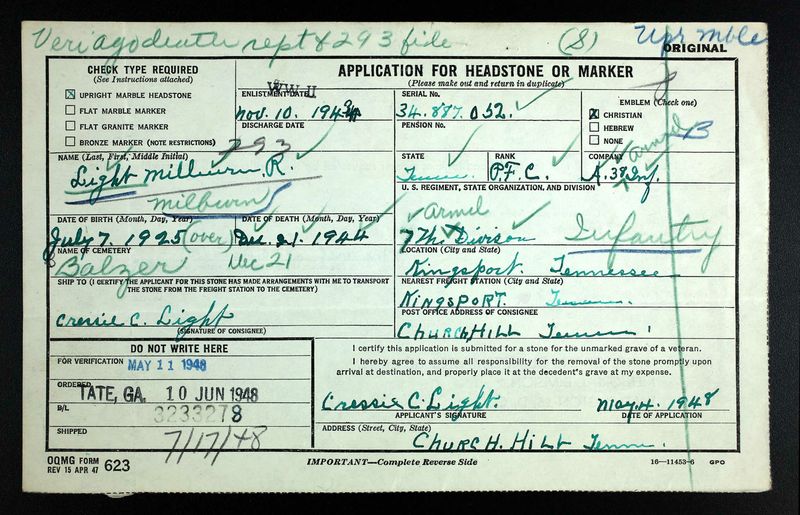 Veri ago death rept & 293 file (S) Upr mble
ORIGINAL
CHECK TYPE REQUIRED
(See Instructions attached)
☒ UPRIGHT MARBLE HEADSTONE
☐ FLAT MARBLE MARKER
☐ FLAT GRANITE MARKER
☐ BRONZE MARKER (NOTE RESTRICTIONS)
APPLICATION FOR HEADSTONE OR MARKER
(Please make out and return in duplicate)
ENLISTMENT DATE
WW II
Nov. 10. 1944
DISCHARGE DATE
293
SERIAL NO.
34.887.052.
PENSION NO.
EMBLEM (Check one)
☒ CHRISTIAN
☐ HEBREW
☐ NONE
B
NAME (Last, First, Middle Initial)
Light Milburn. R.
Milburn
STATE
Tenn.
RANK
P.F.C.
COMPANY
Armd
A. 38. Inf.
U. S. REGIMENT, STATE ORGANIZATION, AND DIVISION
Armd
7th. Divison Infantry
DATE OF BIRTH (Month, Day, Year)
July 7. 1925 (over)
DATE OF DEATH (Month, Day, Year)
Dec. 21. 1944
Dec 21
NAME OF CEMETERY
Balzer
LOCATION (City and State)
Kingsport. Tennessee
SHIP TO (I CERTIFY THE APPLICANT FOR THIS STONE HAS MADE ARRANGEMENTS WITH ME TO TRANSPORT
THE STONE FROM THE FREIGHT STATION TO THE CEMETERY)
Cressie C. Light
(SIGNATURE OF CONSIGNEE)
NEAREST FREIGHT STATION (City and State)
KINGSPORT. Tenn.
POST OFFICE ADDRESS OF CONSIGNEE
CHURCH HILL Tenn.
DO NOT WRITE HERE
FOR VERIFICATION
MAY 11 1948
ORDERED
TATE, GA. 10 JUN 1948
B/L
3233278
SHIPPED
7/17/48
I certify this application is submitted for a stone for the unmarked grave of a veteran.
I hereby agree to assume all responsibility for the removal of the stone promptly upon
arrival at destination, and properly place it at the decedent's grave at my expense.
Cressie C. Light. May. 4. 1948
APPLICANT'S SIGNATURE DATE OF APPLICATION
ADDRESS (Street, City, State)
CHURCH. HILL Tenn.
OQMG FORM
REV 15 APR 47 623
IMPORTANT—Complete Reverse Side
16—11453-6 GPO